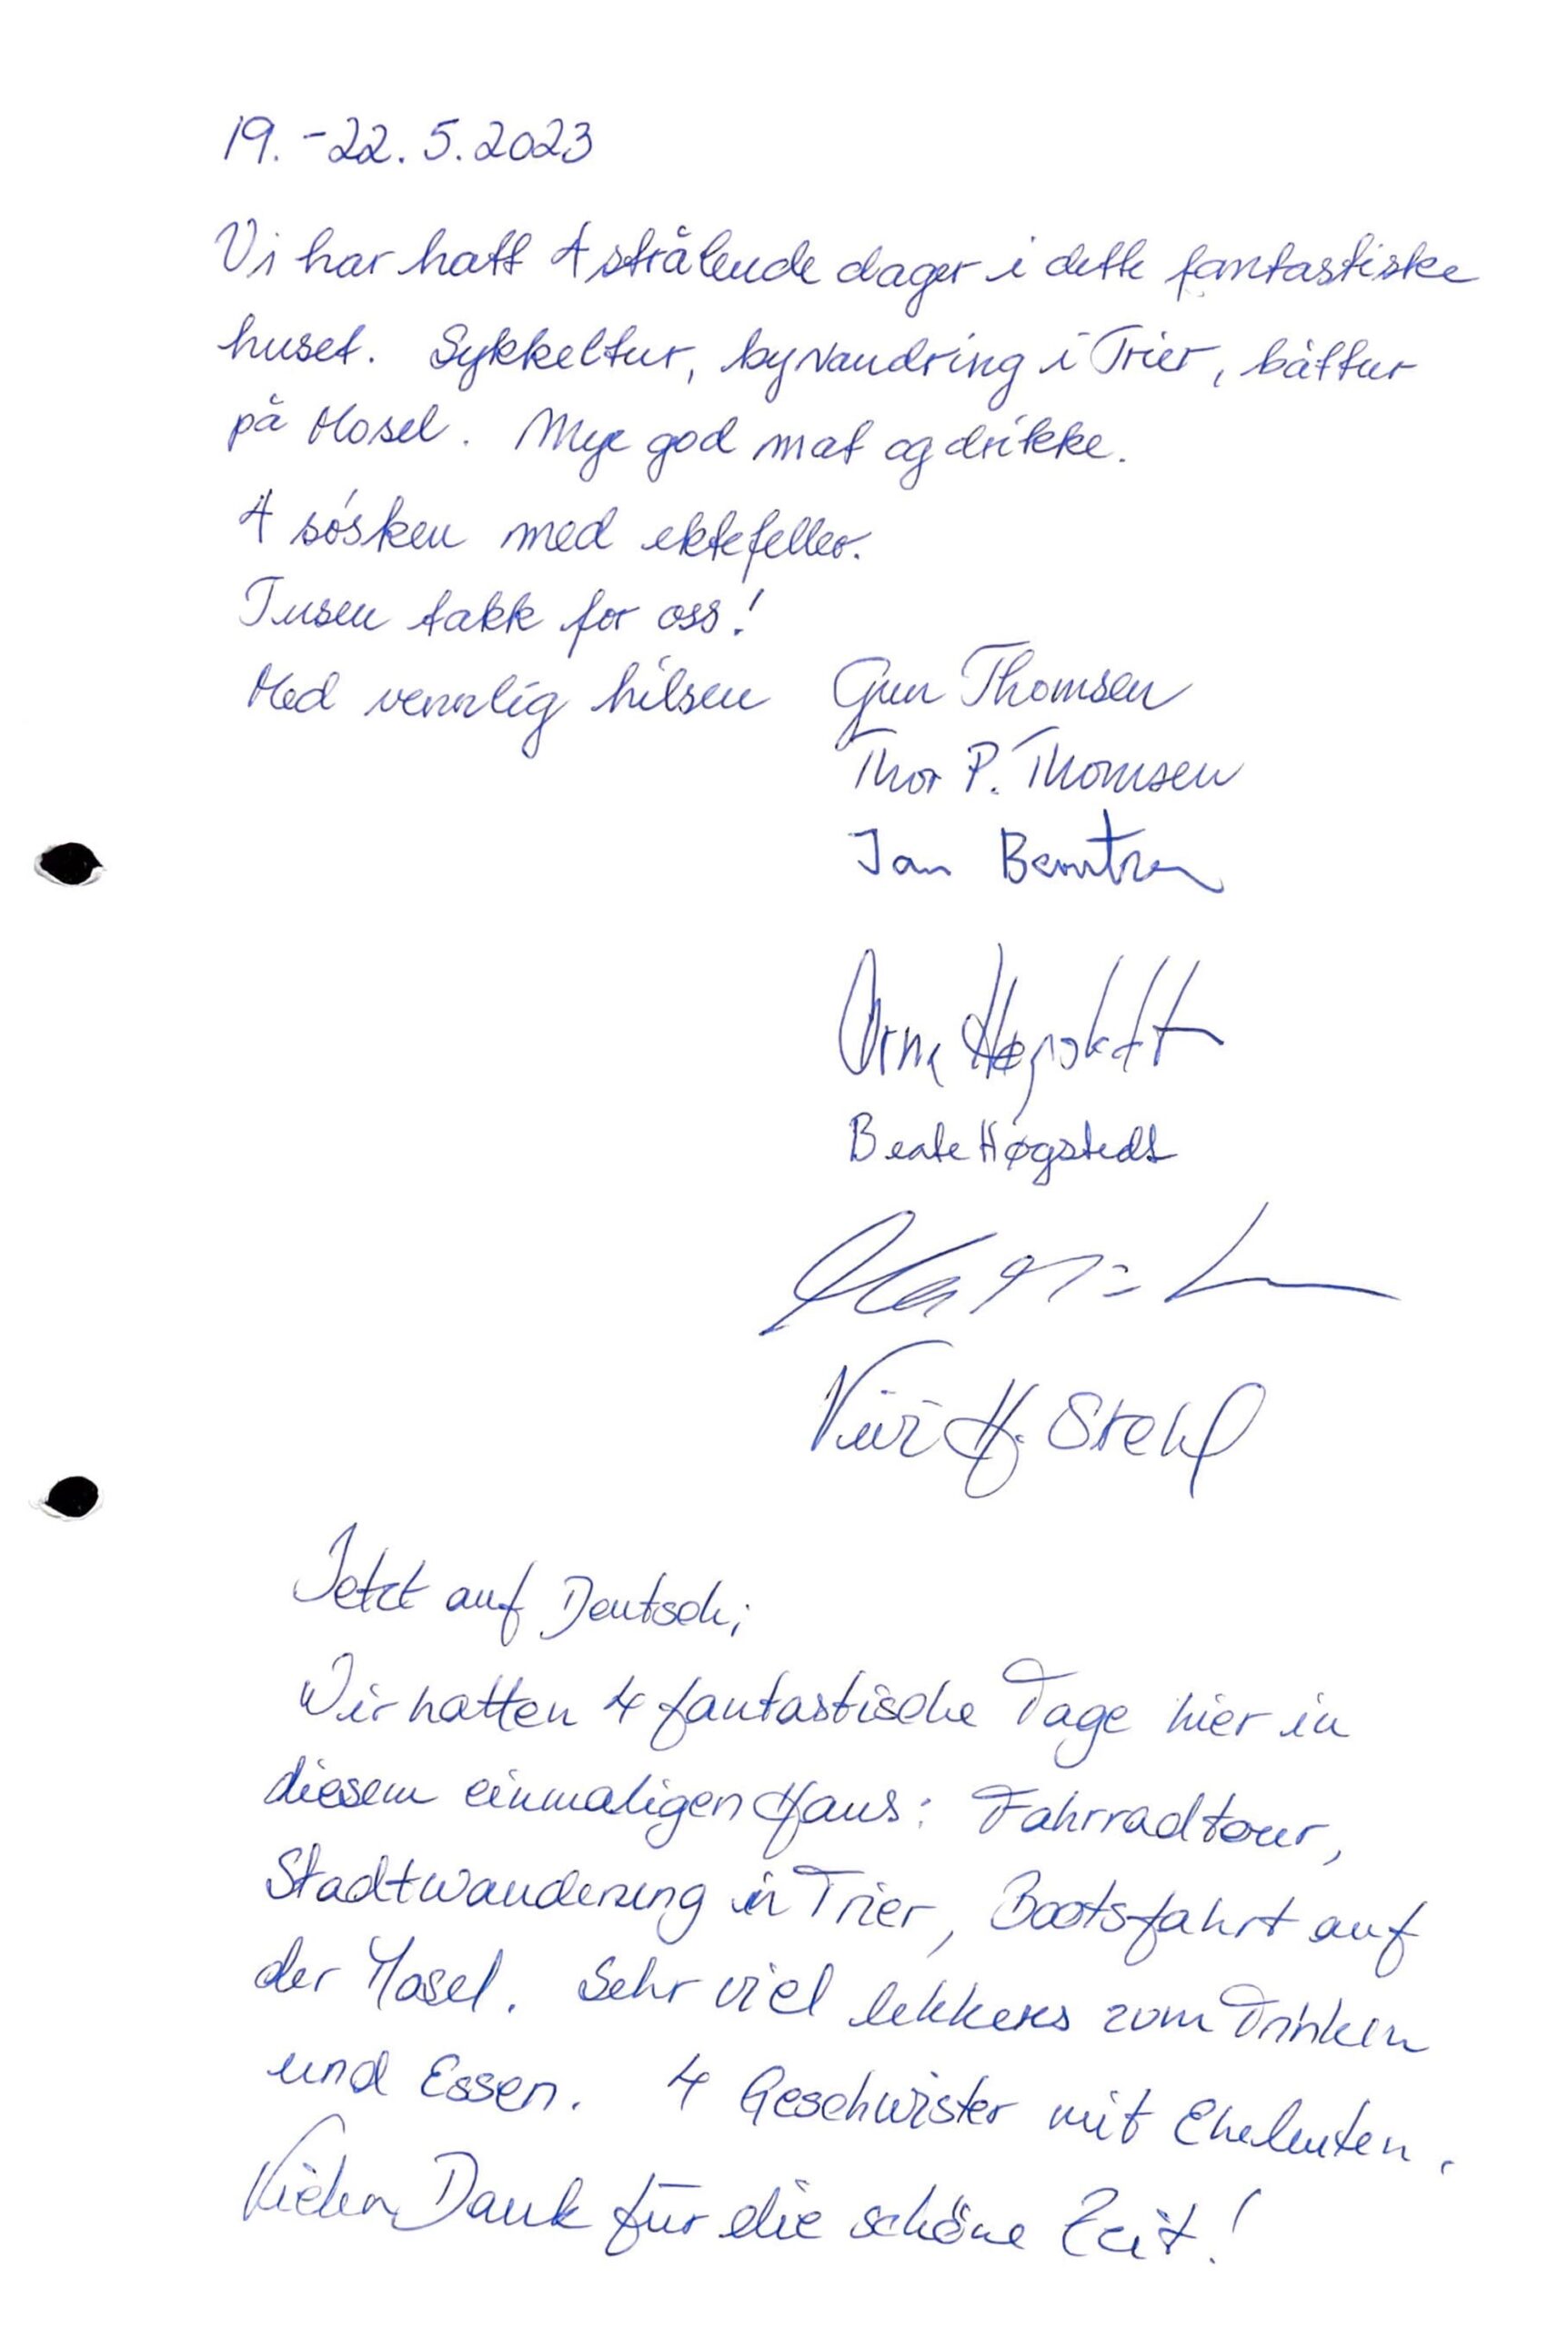 19.-22.5.2023
Vi har hatt 4 strålende dager i dette fantastiske
huset. Sykkeltur, byvandring i Trier, båttur
på Mosel. Mye god mat og drikke.
4 sósken med ektefeller.
Tusen takk for oss!
Med vennlig hilsen Gun Thomsen
Thor P. Thomsen
Jan
Beate Høgstedt
Vivi H. Stehl
Jetzt auf Deutsch;
Wir hatten 4 fantastische Tage hier in
diesem einmaligen Haus: Fahrradtour,
Stadtwanderung in Trier, Bootsfahrt auf
der Mosel. Sehr viel lekkeres zum Trinken
und Essen. 4 Geschwister mit Eheleuten.
Vielen Dank für die schöne Zeit!